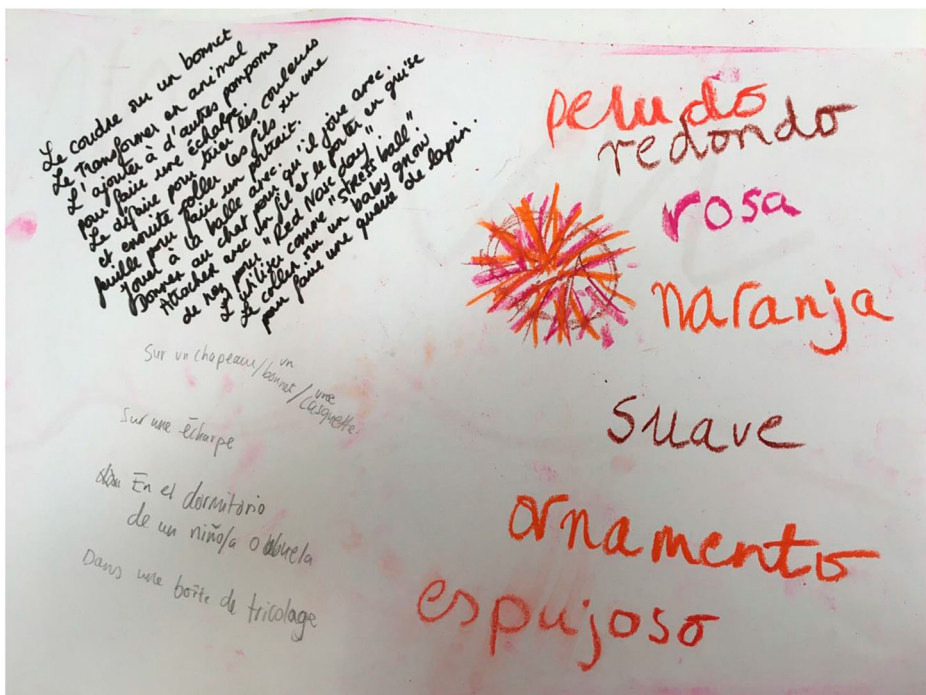 Le coudre sur un bonnet
Le transformer en animal
L'ajouter à d'autres pompoms
pour faire une écharpe.
Le défaire pour trier les couleurs
et ensuite coller les fils sur une
feuille pour faire un portrait.
Jouer à la balle avec.
Donner au chat pour qu'il joue avec.
Attacher avec un fil et le porter en guise
de nez pour "Red Nose day"
L'utiliser comme "stress ball"
Le coller sur un baby grow
pour faire une queue de lapin.
Sur un chapeau/un bonnet/une casquette
Sur une écharpe
En el dormitorio
de un niño/a o abuela
Dans une boîte de tricolage
peludo
redondo
rosa
naranja
suave
ornamento
espujoso